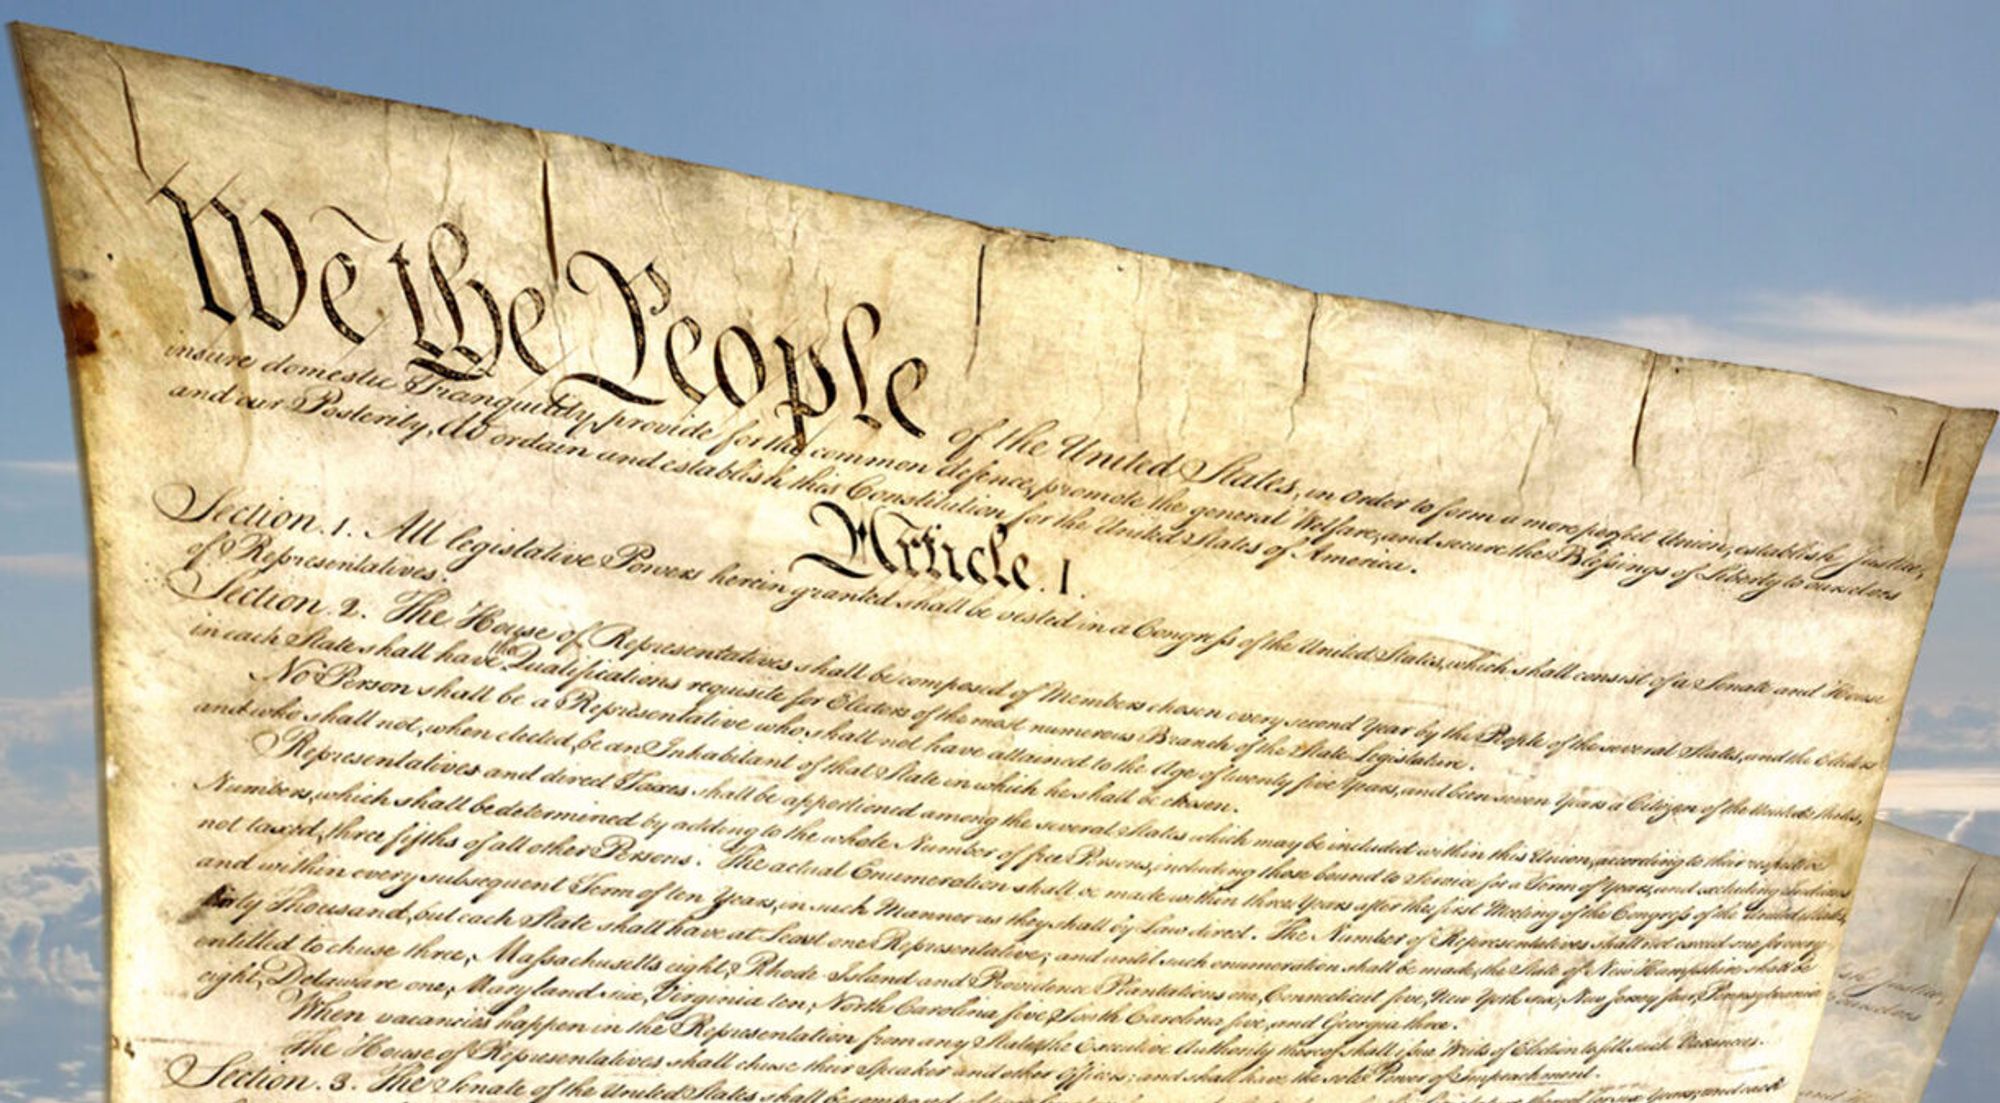 We the People of the United States, in Order to form a more perfect Union, establish Justice,
insure domestic Tranquility, provide for the common defence, promote the general Welfare, and secure the Blessings of Liberty to ourselves
and our Posterity, do ordain and establish this Constitution for the United States of America.
Article. I.
Section. 1. All legislative Powers herein granted shall be vested in a Congress of the United States, which shall consist of a Senate and House
of Representatives.
Section. 2. The House of Representatives shall be composed of Members chosen every second Year by the People of the several States, and the Electors
in each State shall have the Qualifications requisite for Electors of the most numerous Branch of the State Legislature.
No Person shall be a Representative who shall not have attained to the Age of twenty five Years, and been seven Years a Citizen of the United States,
and who shall not, when elected, be an Inhabitant of that State in which he shall be chosen.
Representatives and direct Taxes shall be apportioned among the several States which may be included within this Union, according to their respective
Numbers, which shall be determined by adding to the whole Number of free Persons, including those bound to Service for a Term of Years, and excluding Indians
not taxed, three fifths of all other Persons. The actual Enumeration shall be made within three Years after the first Meeting of the Congress of the United States,
and within every subsequent Term of ten Years, in such Manner as they shall by Law direct. The Number of Representatives shall not exceed one for every
thirty Thousand, but each State shall have at Least one Representative; and until such enumeration shall be made, the State of New Hampshire shall be
entitled to chuse three, Massachusetts eight, Rhode-Island and Providence Plantations one, Connecticut five, New York six, New Jersey four, Pennsylvania
eight, Delaware one, Maryland six, Virginia ten, North Carolina five, South Carolina five, and Georgia three.
When vacancies happen in the Representation from any State, the Executive Authority thereof shall issue Writs of Election to fill such Vacancies.
The House of Representatives shall chuse their Speaker and other Officers; and shall have the sole Power of Impeachment.
Section. 3. The Senate of the United States shall be composed of for six Years; and each
Justice,
ourselves